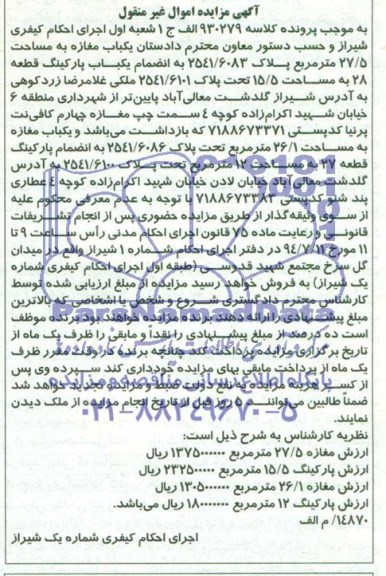 آگهی مزایده اموال غیر منقول
به موجب پرونده کلاسه ۹۳۰۲۷۹ الف ج ۱ شعبه اول اجرای احکام کیفری
شیراز و حسب دستور معاون محترم دادستان یکباب مغازه به مساحت
۲۷/۵ مترمربع پلاک ۲۵۴۱/۶۰۸۳ به انضمام یکباب پارکینگ قطعه
۲۸ به مساحت ۱۵/۵ تحت پلاک ۲۵۴۱/۶۱۰۱ ملکی غلامرضا زردکوهی
به آدرس شیراز گلدشت معالی‌آباد پایین‌تر از شهرداری منطقه ۶
خیابان شهید اکرام‌زاده کوچه ۴ سمت چپ مغازه چهارم کافی‌نت
پرنیا کدپستی ۷۱۸۸۶۷۳۳۷۱ که بازداشت می‌باشد و یکباب مغازه
به مساحت ۲۶/۱ مترمربع تحت پلاک ۲۵۴۱/۶۰۸۶ به انضمام پارکینگ
قطعه ۲۷ به مساحت ۱۲ مترمربع تحت پلاک ۲۵۴۱/۶۱۰۰ به آدرس
گلدشت معالی آباد خیابان لادن خیابان شهید اکرام‌زاده کوچه ۴ عطاری
پند شلو کدپستی ۷۱۸۸۶۷۳۳۸۳ با توجه به عدم معرفی محکوم علیه
از سوی وثیقه‌گذار از طریق مزایده حضوری پس از انجام تشریفات
قانونی و رعایت ماده ۷۵ قانون اجرای احکام مدنی رأس ساعت ۹ تا
۱۱ مورخ ۹۴/۷/۱۱ در دفتر اجرای احکام شماره ۱ شیراز واقع در میدان
گل سرخ مجتمع شهید قدوسی (طبقه اول اجرای احکام کیفری شماره
یک شیراز) به فروش خواهد رسید مزایده از مبلغ ارزیابی شده توسط
کارشناس محترم دادگستری شروع و شخص یا اشخاصی که بالاترین
مبلغ پیشنهادی را ارائه دهند برنده مزایده خواهند بود برنده موظف
است ده درصد از مبلغ پیشنهادی را نقداً و مابقی را ظرف یک ماه از
تاریخ برگزاری مزایده پرداخت کند چنانچه برنده در وقت مقرر ظرف
یک ماه از پرداخت مابقی بهای مزایده خودداری کند سپرده وی پس
از کسر هزینه مزایده به نفع دولت ضبط و مزایده تجدید خواهد شد
ضمناً طالبین می‌توانند ۵ روز قبل از تاریخ انجام مزایده از ملک دیدن
نمایند.
۰۲۱-۸۸۳۴۹۶۷۰-۵
نظریه کارشناس به شرح ذیل است:
ارزش مغازه ۲۷/۵ مترمربع ۱۳۷۵۰۰۰۰۰۰ ریال
ارزش پارکینگ ۱۵/۵ مترمربع ۲۳۲۵۰۰۰۰۰ ریال
ارزش مغازه ۲۶/۱ مترمربع ۱۳۰۵۰۰۰۰۰۰ ریال
ارزش پارکینگ ۱۲ مترمربع ۱۸۰۰۰۰۰۰۰ ریال می‌باشد.
۱۴۸۷۰/ م الف
اجرای احکام کیفری شماره یک شیراز